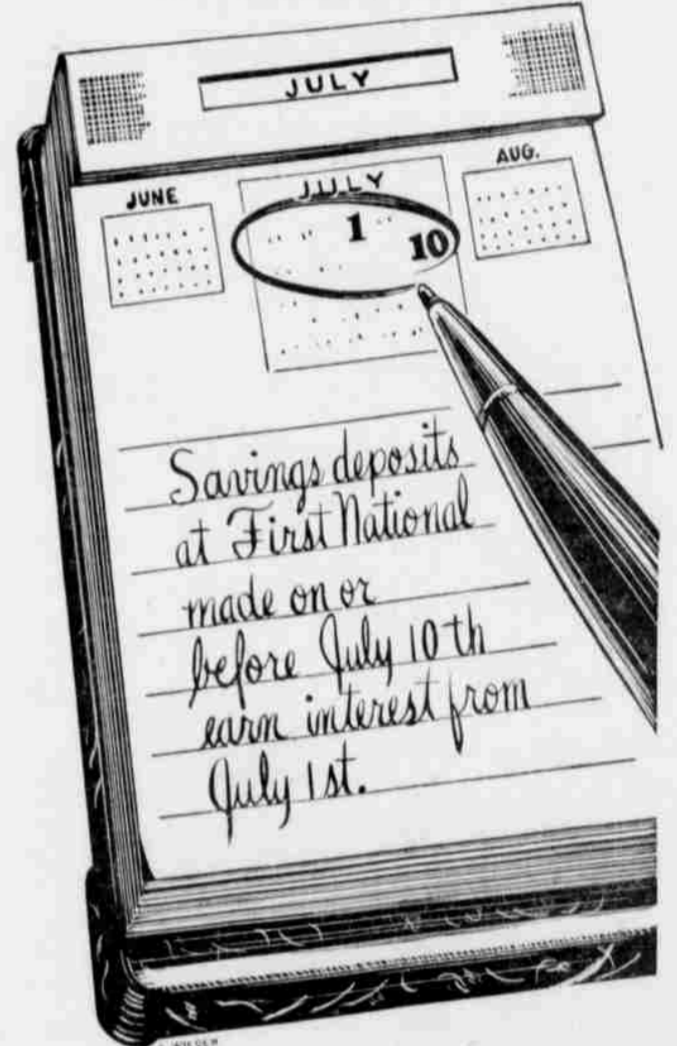 JULY
JUNE
JULY
AUG.
1
10
Savings deposits
at First National
made on or
before July 10th
earn interest from
July 1st.